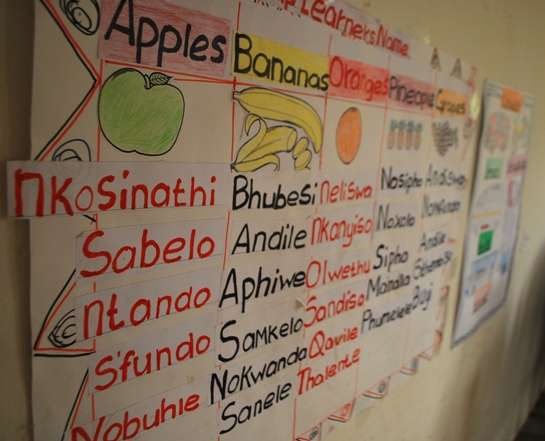 Learners Name
Apples Bananas Oranges Pineapple Grapes
Nkosinathi Bhubesi Neliswa Nasipho
Sabelo Andile Nkanyiso Noxolo
Ntando Aphiwe Olwethu Sipho Andile
S'fundo Samkelo Sandiso
Nobuhle Nokwanda Qavile Phumelele
Sanele Thalente